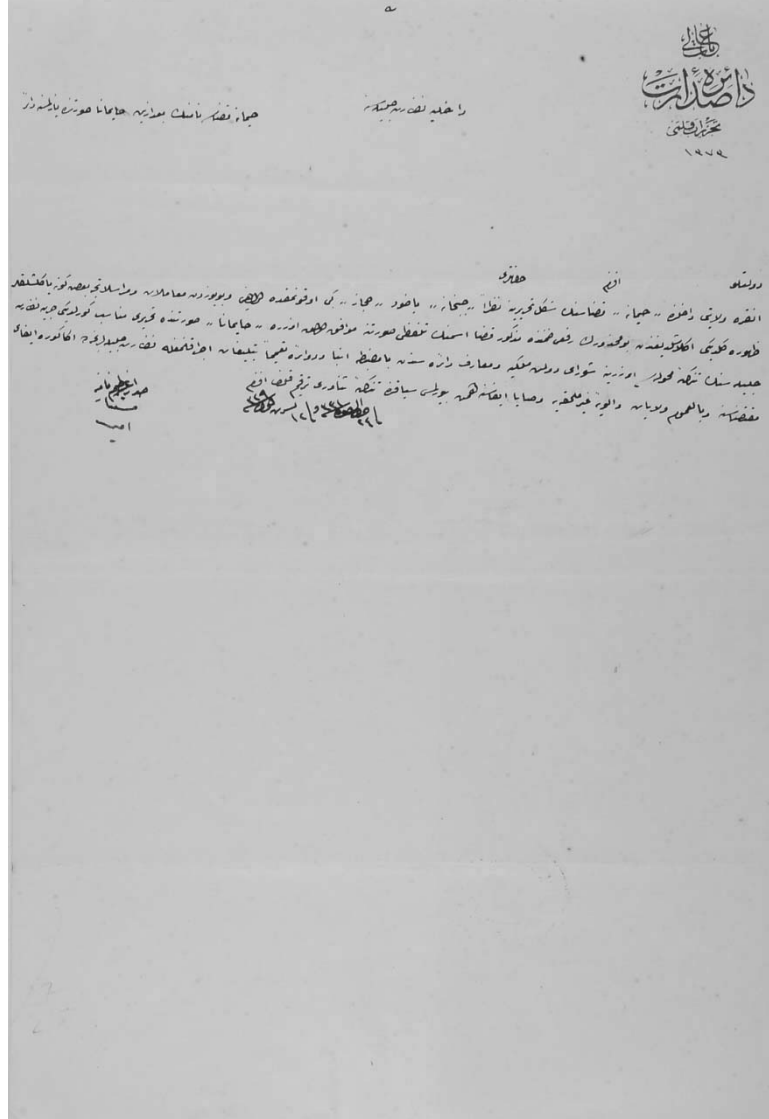 باب عالی
دائرهٔ صدارت
تحریرات قلمی
١٩٧٩
داخلیه نظارت جلیله‌سنه
حیمانه قضاسی نامنك بعدازین حایمانا صورتنده یازلمسنه دائر
دولتلو افندم حضرتلری
انقره ولایتی داخلنده «حیمانه» قضاسنك شكل تحریرینه نظراً «جبخانه» یاخود «همانه» كبی اوقونمقده اولدیغی وبویوزدن معاملات ومراسلاتجه بعض گونه یاكلشلقلر
ظهوره كلدیكی اكلاشلدیغندن بو محذورك رفعی ضمننده مذكور قضا اسمنك تلفظی صورتنه موافق اولمق اوزره «حایمانا» صورتنده تحریری مناسب كورلدیكی حربیه نظارت
جلیله‌سنك تذكره محوله‌سی اوزرینه شورای دولت ملكیه ومعارف دائره‌سندن بامضبطه انبا ودوائره تعمیماً تبلیغات اجرا قلنمغله نظارت جلیله‌لرنجه اكا كوره ایفای
مقتضاسنه وبالعموم ولایات والویهٔ غیر ملحقه‌یه وصایا ایفاسنه همت بیورلمسی سیاقنده تذكره ثناوری ترقیم قلندی افندم
صدر اعظم نامنه
مستشار
امین